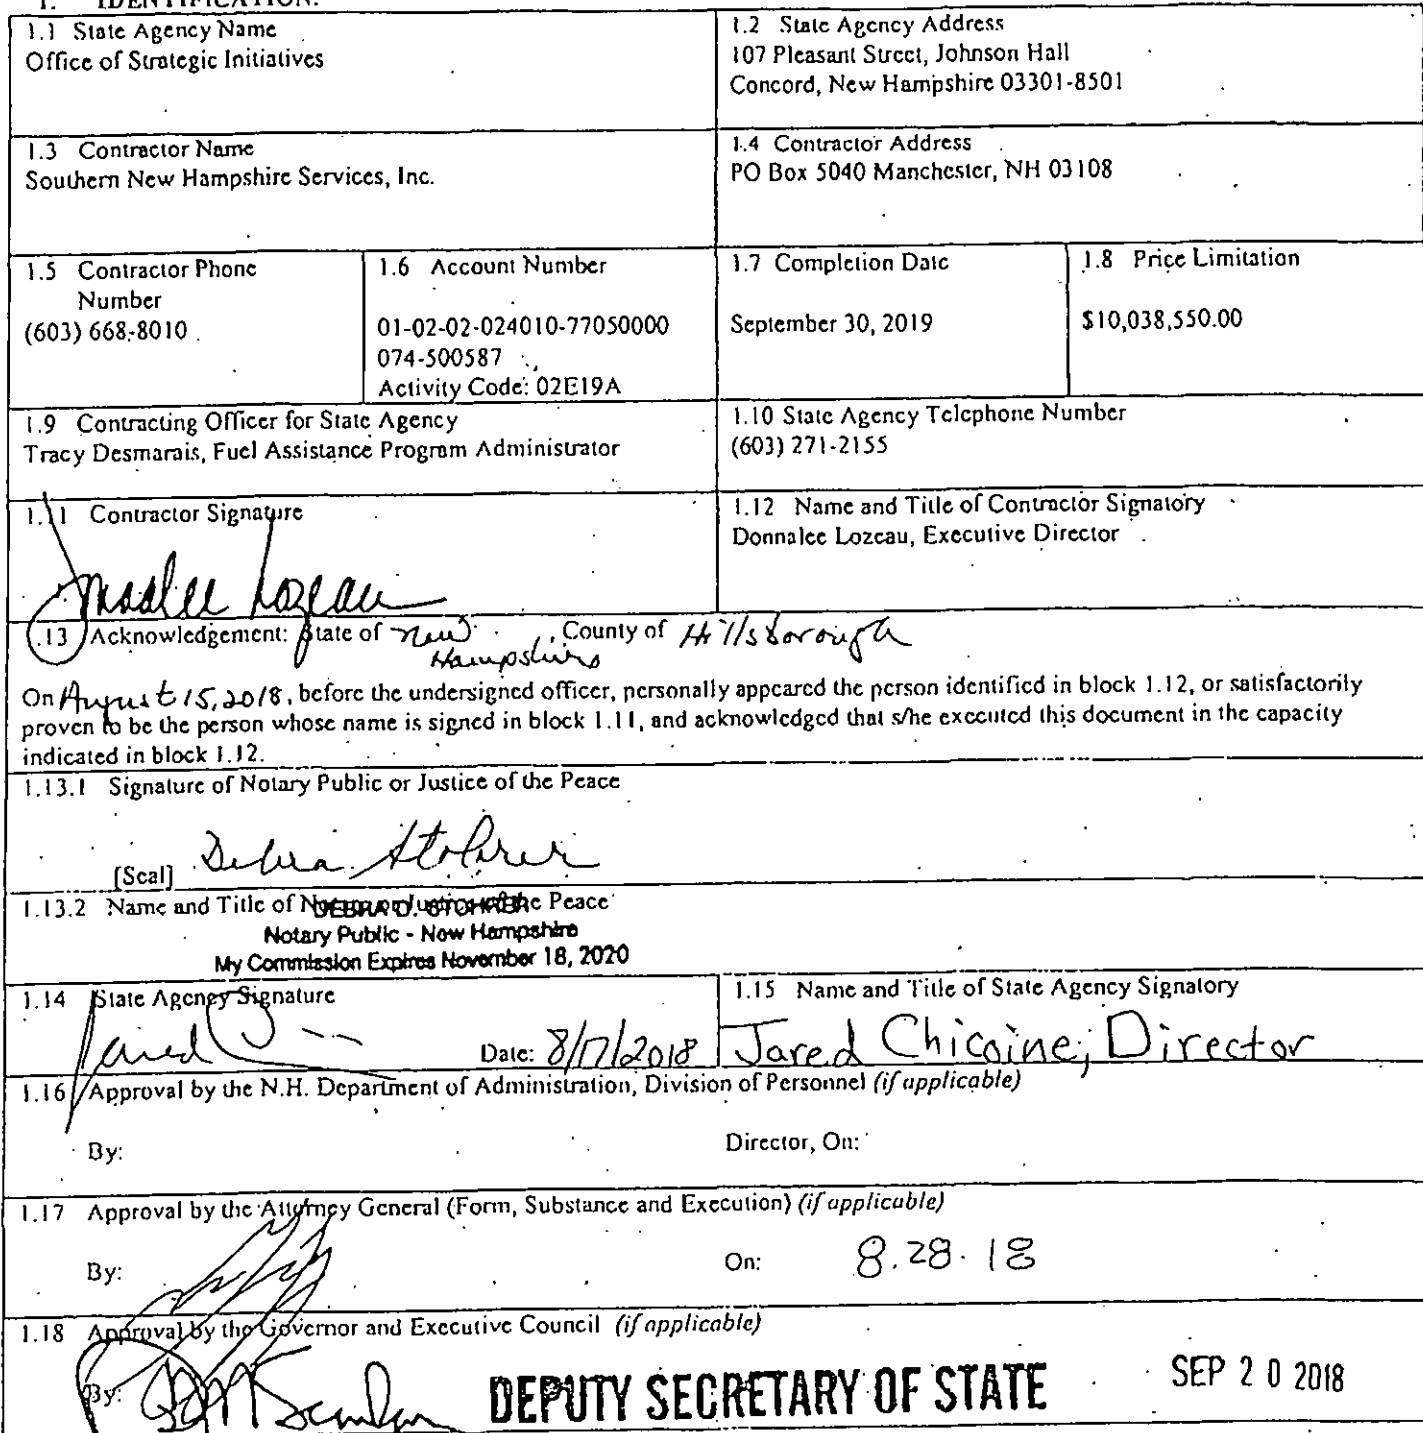 1. IDENTIFICATION.
1.1 State Agency Name
Office of Strategic Initiatives
1.2 State Agency Address
107 Pleasant Street, Johnson Hall
Concord, New Hampshire 03301-8501
1.3 Contractor Name
Southern New Hampshire Services, Inc.
1.4 Contractor Address
PO Box 5040 Manchester, NH 03108
1.5 Contractor Phone
Number
(603) 668-8010
1.6 Account Number
01-02-02-024010-77050000
074-500587
Activity Code: 02E19A
1.7 Completion Date
September 30, 2019
1.8 Price Limitation
$10,038,550.00
1.9 Contracting Officer for State Agency
Tracy Desmarais, Fuel Assistance Program Administrator
1.10 State Agency Telephone Number
(603) 271-2155
1.11 Contractor Signature
Donnalee Lozeau
1.12 Name and Title of Contractor Signatory
Donnalee Lozeau, Executive Director
1.13 Acknowledgement: State of New Hampshire County of Hillsborough
On August 15, 2018, before the undersigned officer, personally appeared the person identified in block 1.12, or satisfactorily
proven to be the person whose name is signed in block 1.11, and acknowledged that s/he executed this document in the capacity
indicated in block 1.12.
1.13.1 Signature of Notary Public or Justice of the Peace
[Seal] Debra Stohrer
1.13.2 Name and Title of Notary or Justice of the Peace
DEBRA D. STOHRER
Notary Public - New Hampshire
My Commission Expires November 18, 2020
1.14 State Agency Signature
Jared Date: 8/17/2018
1.15 Name and Title of State Agency Signatory
Jared Chicoine, Director
1.16 Approval by the N.H. Department of Administration, Division of Personnel (if applicable)
By: Director, On:
1.17 Approval by the Attorney General (Form, Substance and Execution) (if applicable)
By: On: 8.28.18
1.18 Approval by the Governor and Executive Council (if applicable)
By: DEPUTY SECRETARY OF STATE SEP 20 2018